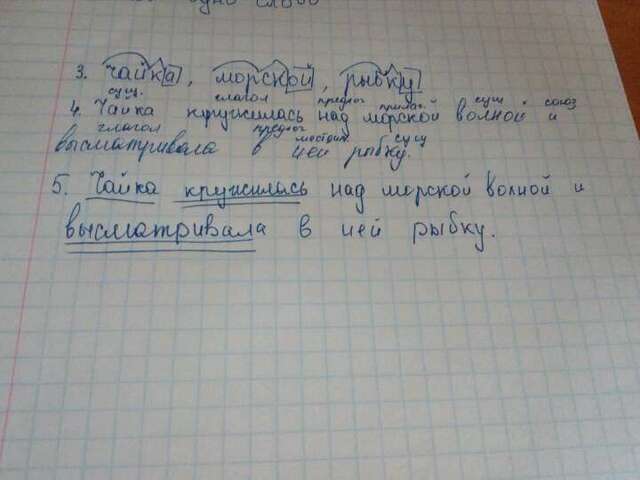 одно слово
3. чайка, морской, рыбку
сущ. глагол предлог прилаг. сущ союз
4. Чайка кружилась над морской волной и
глагол предлог местоим. сущ
высматривала в ней рыбку.
5. Чайка кружилась над морской волной и
высматривала в ней рыбку.